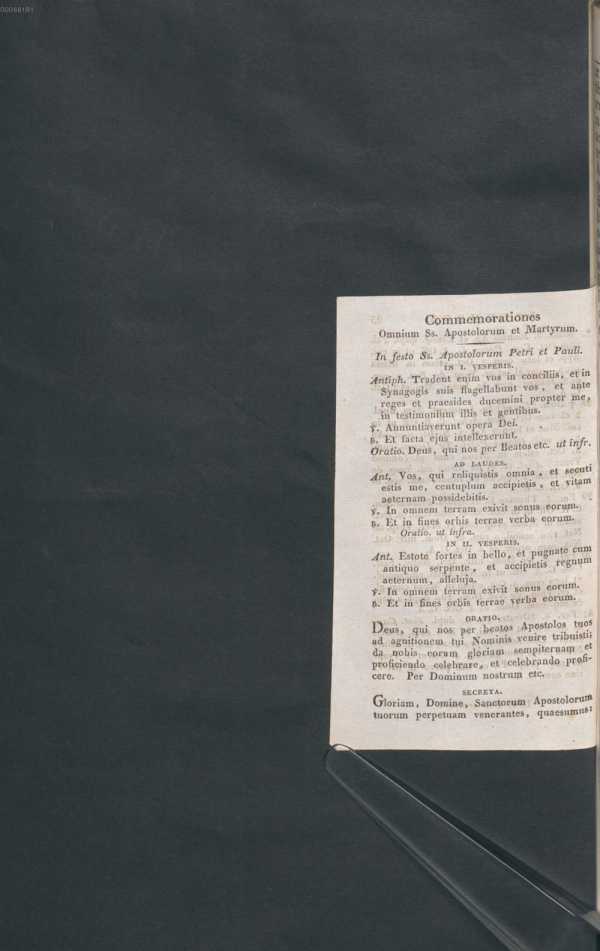 00066181
Commemorationes
Omnium Ss. Apostolorum et Martyrum.
In festo Ss. Apostolorum Petri et Pauli.
IN I. VESPERIS.
Antiph. Tradent enim vos in conciliis, et in
Synagogis suis flagellabunt vos, et ante
reges et praesides ducemini propter me,
in testimonium illis et gentibus.
℣. Annuntiaverunt opera Dei.
℟. Et facta ejus intellexerunt.
Oratio. Deus, qui nos per Beatos etc. ut infr.
AD LAUDES.
Ant. Vos, qui reliquistis omnia, et secuti
estis me, centuplum accipietis, et vitam
aeternam possidebitis.
℣. In omnem terram exivit sonus eorum.
℟. Et in fines orbis terrae verba eorum.
Oratio. ut infra.
IN II. VESPERIS.
Ant. Estote fortes in bello, et pugnate cum
antiquo serpente, et accipietis regnum
aeternum, alleluja.
℣. In omnem terram exivit sonus eorum.
℟. Et in fines orbis terrae verba eorum.
ORATIO.
Deus, qui nos per beatos Apostolos tuos
ad agnitionem tui Nominis venire tribuisti:
da nobis eorum gloriam sempiternam et
proficiendo celebrare, et celebrando profi-
cere. Per Dominum nostrum etc.
SECRETA.
Gloriam, Domine, Sanctorum Apostolorum
tuorum perpetuam venerantes, quaesumus: